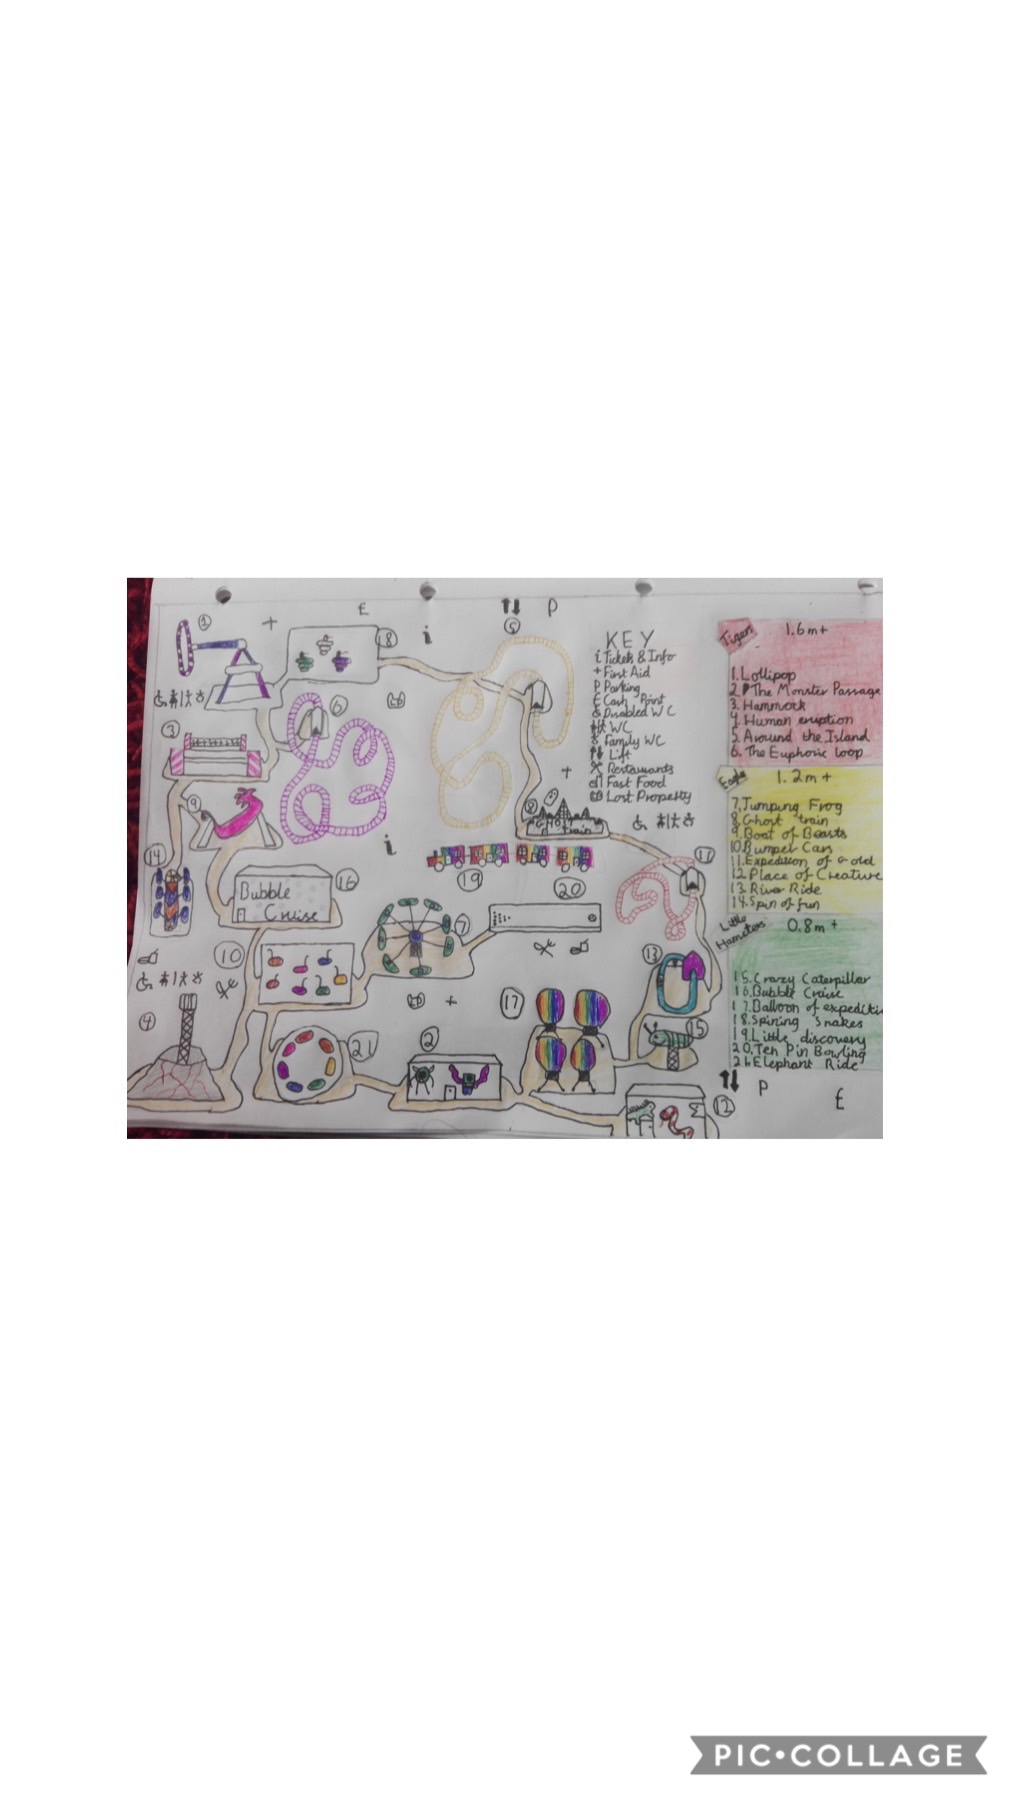 1
+
£
18
i
P
5
3
6
9
+
8
Ghost
train
11
14
i
16
Bubble
Cruise
19
20
7
10
13
17
+
15
4
21
2
12
P
£
KEY
i Tickets & Info
+ First Aid
P Parking
£ Cash Point
Disabled WC
WC
Family WC
Lift
Restaurants
Fast Food
Lost Property
Tigers
1.6m+
1. Lollipop
2. The Monster Passage
3. Hammock
4. Human eruption
5. Around the Island
6. The Euphoric loop
Eagle
1.2m+
7. Jumping Frog
8. Ghost train
9. Boat of Beasts
10. Bumper Cars
11. Expedition of Gold
12. Place of Creature
13. River Ride
14. Spin of fun
Little
Hamsters
0.8m+
15. Crazy Caterpillar
16. Bubble Cruise
17. Balloon of expediti
18. Spining Snakes
19. Little discovery
20. Ten Pin Bowling
21. Elephant Ride
PIC•COLLAGE